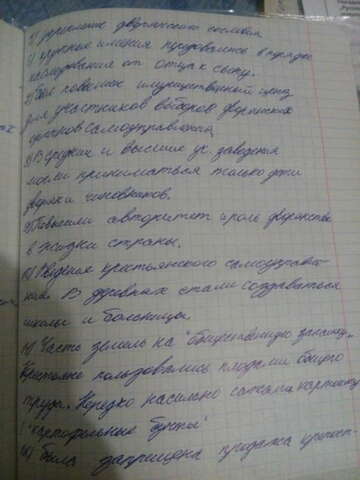 укрепление дворянского сословия
крупные имения передавались в порядке
наследования от отца к сыну.
Был повышен имущественный ценз
для участников выборов дворянских
органов самоуправления
В средних и высших уч. заведения
могли приниматься только дети
дворян и чиновников.
Повысили авторитет и роль дворянства
в жизни страны.
крестьянского самоуправле
ния В деревнях стали создаваться
школы и больницы
Часть земель на "общественную запашку"
Крестьяне пользовались плодами общего
труда. Нередко насильно сажали картошку
"картофельные бунты"
Была запрещена продажа крепост-